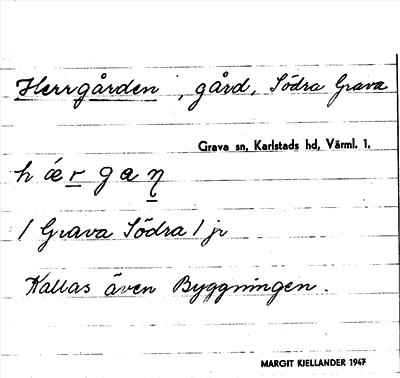 Herrgården, gård, Södra Grava
Grava sn, Karlstads hd, Värml. 1.
hǽrgaṉ
/ Grava Södra / jr
Kallas även Byggningen.
MARGIT KJELLANDER 1947